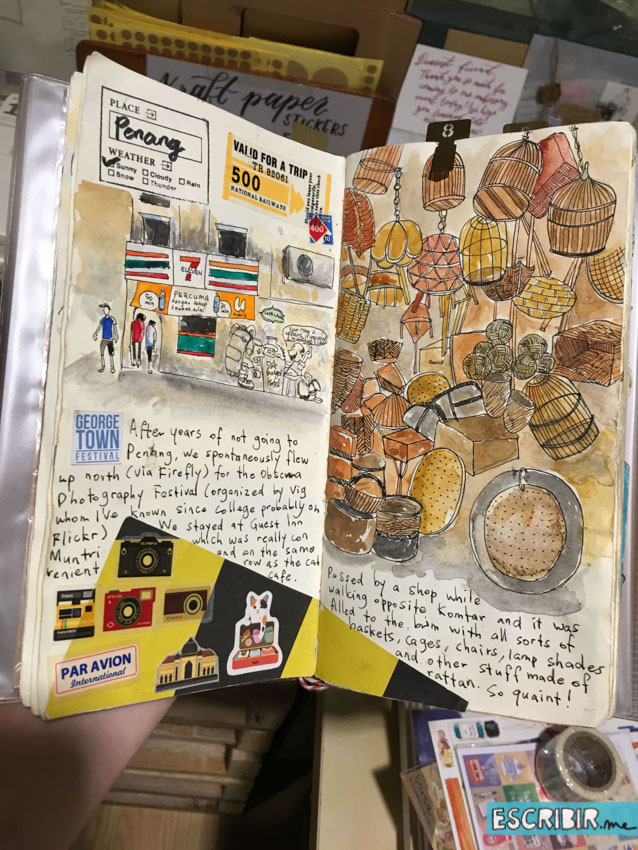 Kraft paper
STICKERS
Dearest friend
Thank you so much for
PLACE
Penang
WEATHER
Sunny
Cloudy
Rain
Snow
Thunder
VALID FOR A TRIP
TR 88061
500
NATIONAL RAILWAYS
400
7
ELEVEN
PERCUMA
GEORGE
TOWN
FESTIVAL
After years of not going to
Penang, we spontaneously flew
up north (via Firefly) for the Obscura
Photography Festival (organized by Vig
whom I've known since College probably on
Flickr) We stayed at Guest Inn
Muntri which was really con
venient and on the same
row as the cat
cafe.
Classic
PAR AVION
International
8
Passed by a shop while
walking opposite Komtar and it was
filled to the brim with all sorts of
baskets, cages, chairs, lamp shades
and other stuff made of
rattan. So quaint!
ESCRIBIR.me